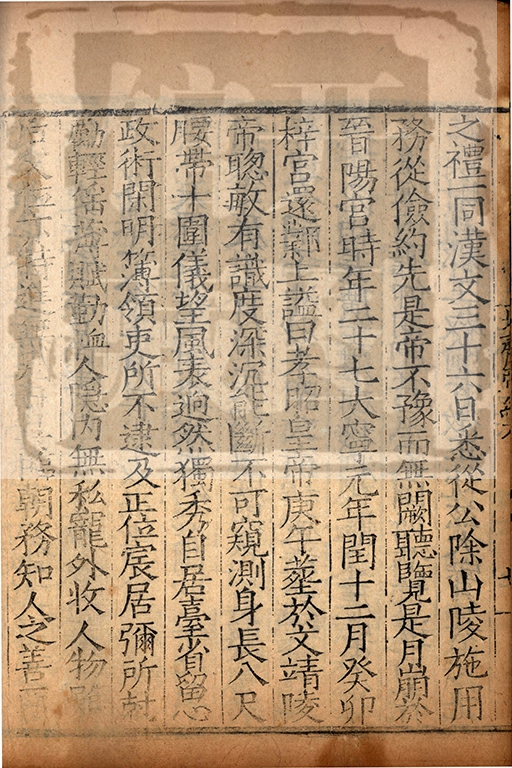 之禮一同漢文三十六日悉從公除山陵施用
務從儉約先是帝不豫而無闕聽覽是月崩於
晉陽宮時年二十七大寧元年閏十二月癸卯
梓宮還鄴上諡曰孝昭皇帝庚午葬於文靖陵
帝聰敏有識度深沉能斷不可窺測身長八尺
腰帶十圍儀望風表逈然獨秀自居臺省留心
政術閑明簿領吏所不逮及正位宸居彌所尅
勵輕徭薄賦勤恤人隱內無私寵外收人物雖
朝務知人之善